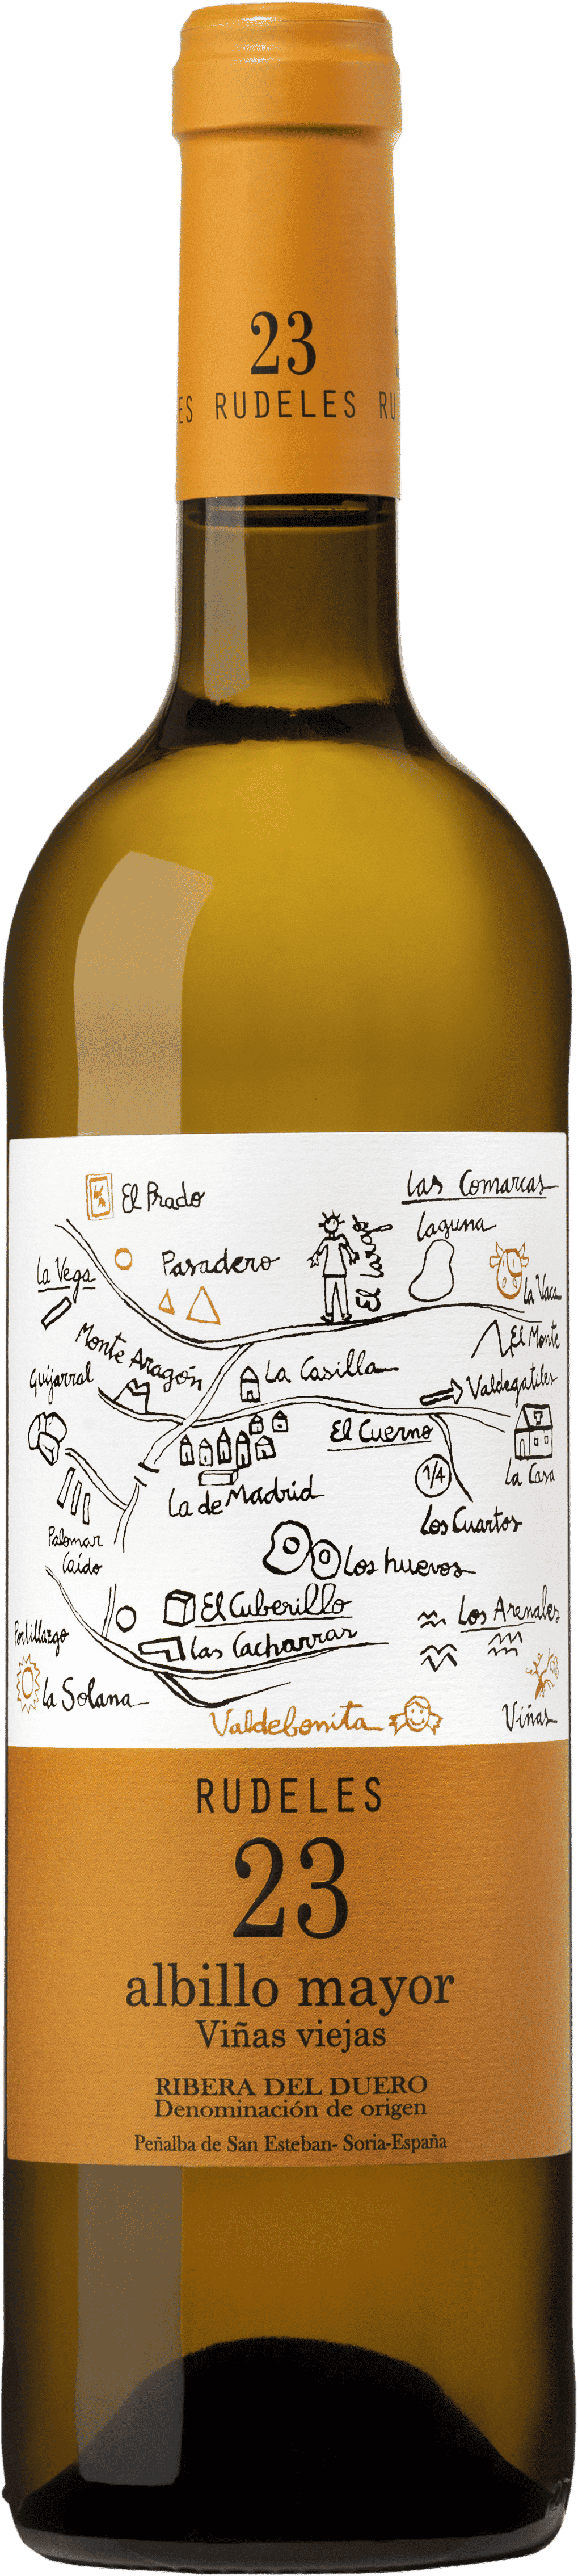 23
ES RUDELES RU
El Prado
Las Comarcas
Laguna
La Vega
Pasadero
El Lavajo
La Vaca
Monte Aragón
El Monte
Guijarral
La Casilla
Valdegatiles
El Cuerno
La de Madrid
1/4
La Casa
Los Cuartos
Palomar
Caído
Los huevos
El Cuberillo
Los Arenales
Portillargo
Las Cacharras
La Solana
Valdebonita
Viñas
RUDELES
23
albillo mayor
Viñas viejas
RIBERA DEL DUERO
Denominación de origen
Peñalba de San Esteban- Soria-España